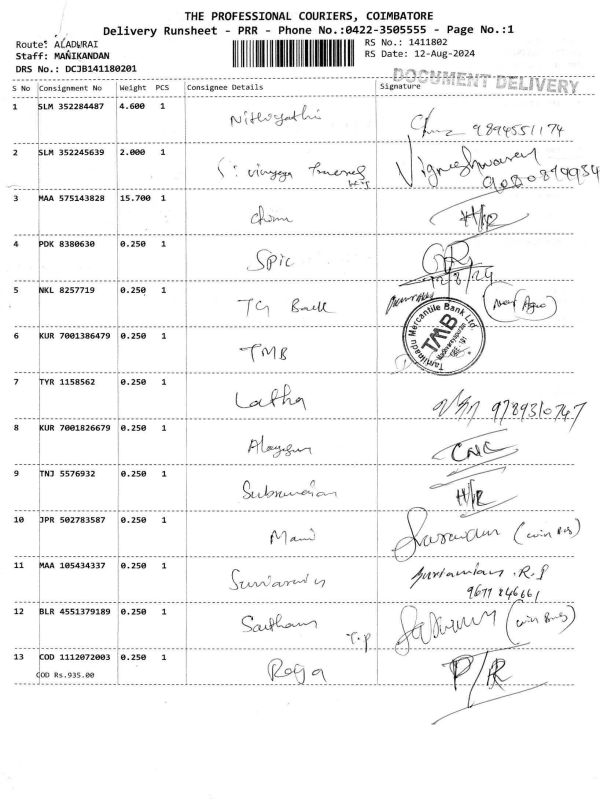 THE PROFESSIONAL COURIERS, COIMBATORE
Delivery Runsheet - PRR - Phone No.:0422-3505555 - Page No.:1
Route: ALADURAI
RS No.: 1411802
Staff: MANIKANDAN
RS Date: 12-Aug-2024
DRS No.: DCJB141180201
DOCUMENT DELIVERY
S No Consignment No Weight PCS Consignee Details Signature
1 SLM 352284487 4.600 1
9894551174
2 SLM 352245639 2.000 1 Vigneshwaran
9080899934
3 MAA 575143828 15.700 1 H/R
4 PDK 8380630 0.250 1 SPIC
12/8/24
5 NKL 8257719 0.250 1 TG
Tamilnadu Mercantile Bank Ltd.
TMB
6 KUR 7001386479 0.250 1 TMB
7 TYR 1158562 0.250 1 Latha 9789310747
8 KUR 7001826679 0.250 1 CNC
9 TNJ 5576932 0.250 1 H/R
10 JPR 502783587 0.250 1 Mani
11 MAA 105434337 0.250 1 R.P
9677246661
12 BLR 4551379189 0.250 1 T.P
13 COD 1112072003 0.250 1 Roja P/R
COD Rs.935.00